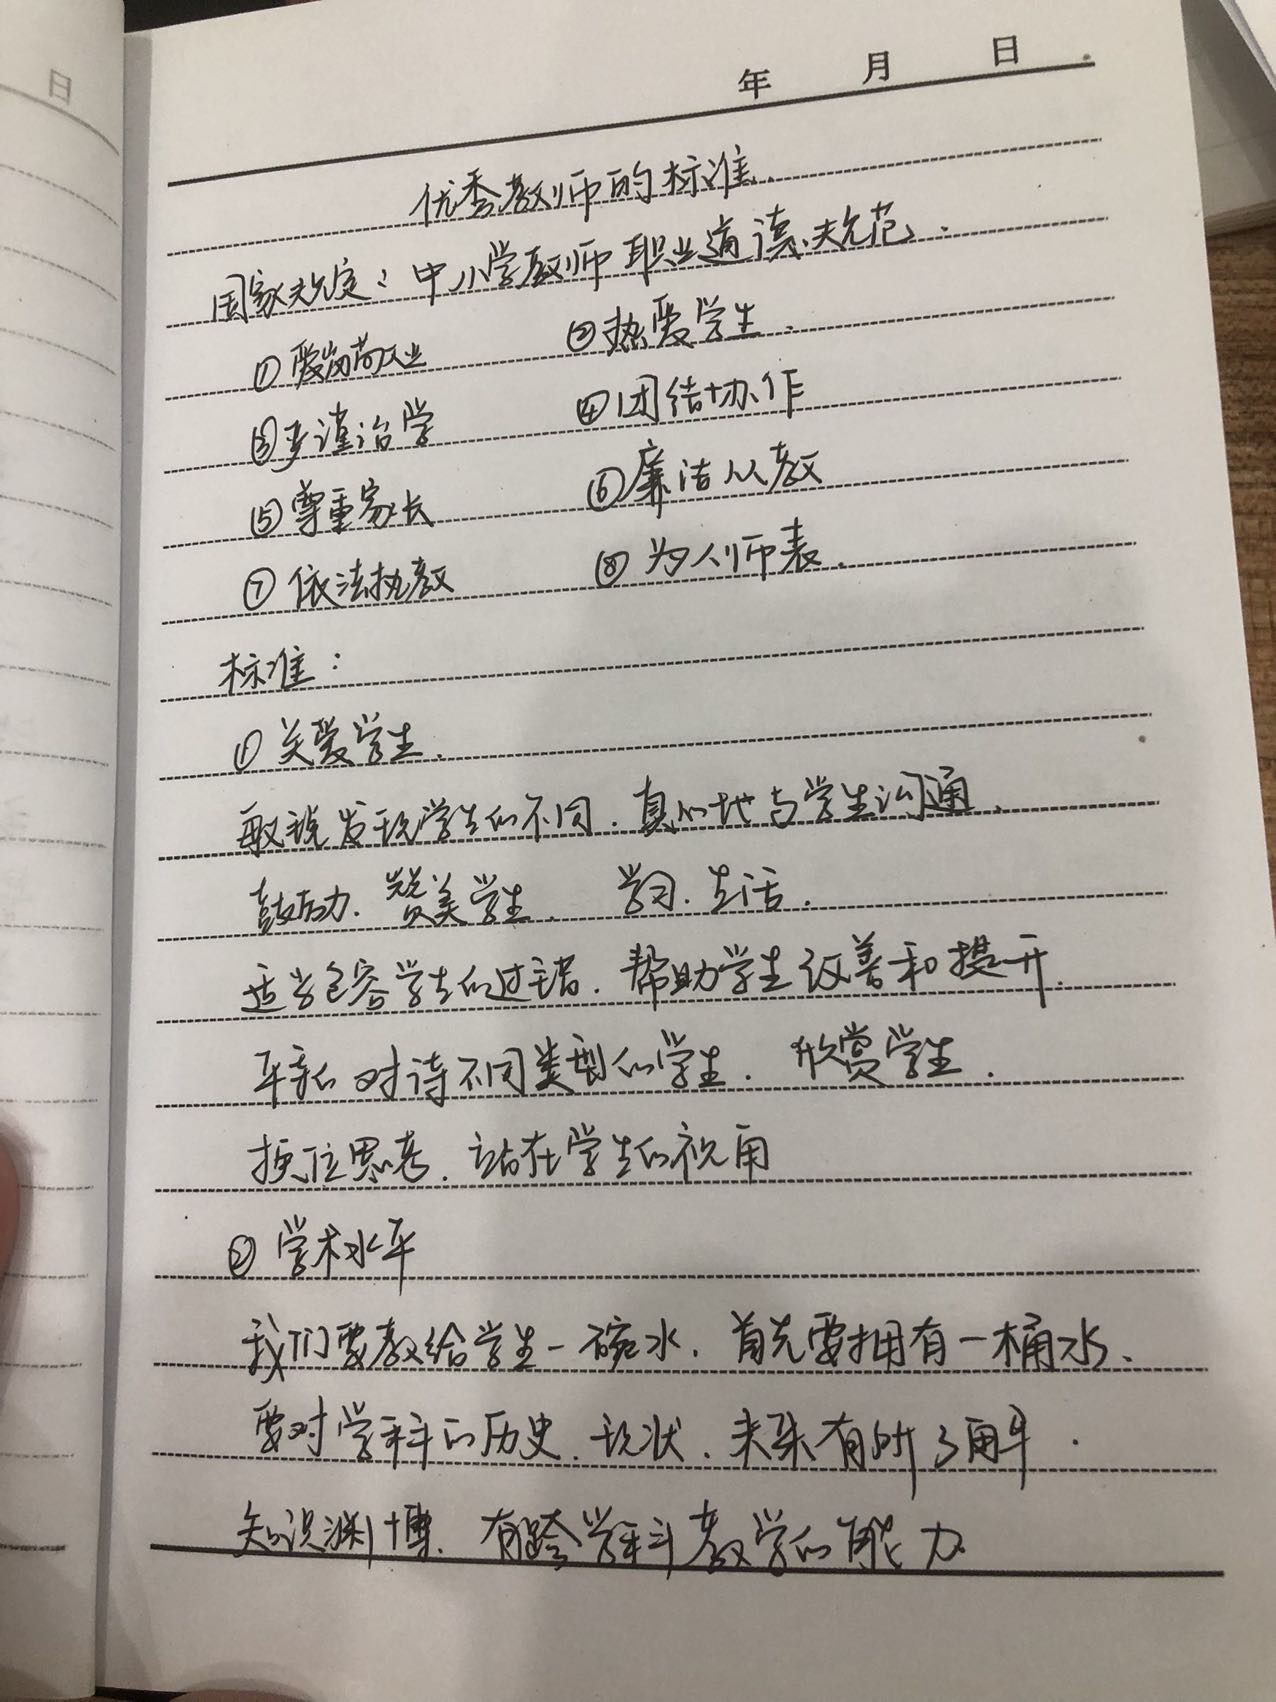 日
年 月 日
优秀教师的标准.
国家规定: 中小学教师职业道德规范.
① 爱岗敬业 ② 热爱学生.
③ 严谨治学 ④ 团结协作
⑤ 尊重家长 ⑥ 廉洁从教
⑦ 依法执教 ⑧ 为人师表.
标准:
① 关爱学生.
敏锐发现学生的不同. 真心地与学生沟通.
鼓励. 赞美学生. 学习. 生活.
适当包容学生的过错. 帮助学生改善和提升.
平和对待不同类型的学生. 欣赏学生.
换位思考. 站在学生的视角
② 学术水平
我们要教给学生一碗水. 首先要拥有一桶水.
要对学科的历史. 现状. 未来有所了解.
知识渊博. 有跨学科教学的能力